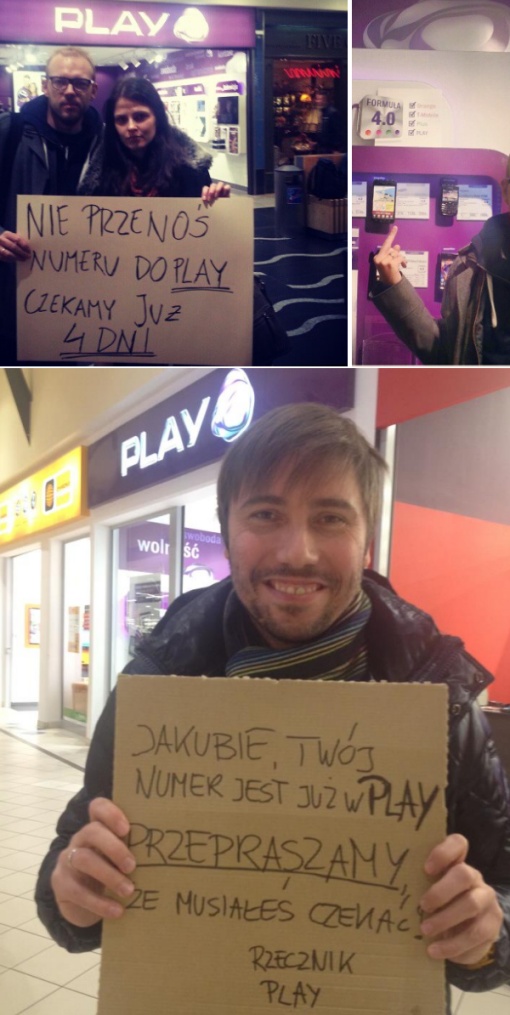 PLAY
FIVE
NIE PRZENOŚ
NUMERU DO PLAY
CZEKAMY JUŻ
4 DNI
FORMUŁA
4.0
PLAY
wolność
swoboda
JAKUBIE, TWÓJ
NUMER JEST JUŻ W PLAY
PRZEPRASZAMY,
ŻE MUSIAŁEŚ CZEKAĆ!
RZECZNIK
PLAY